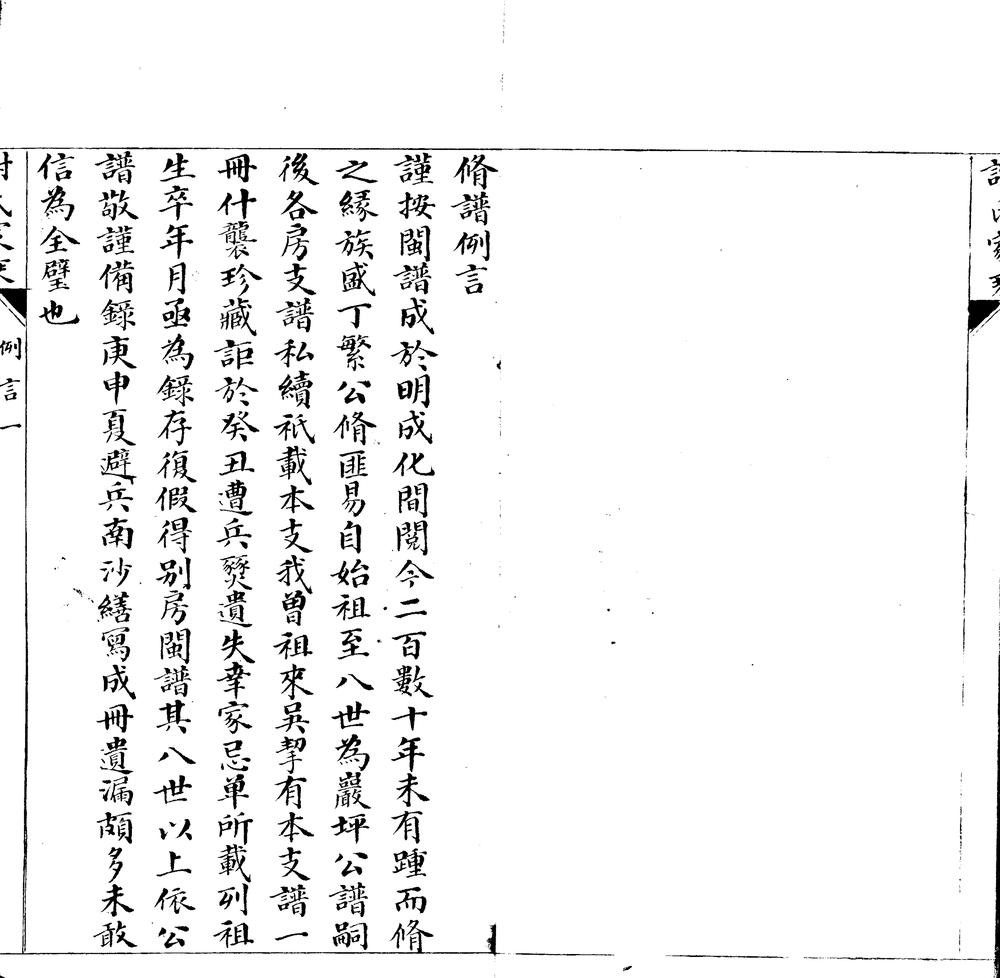 脩譜例言
謹按閩譜成於明成化間閱今二百數十年未有踵而脩
之緣族盛丁繁公脩匪易自始祖至八世為巖坪公譜嗣
後各房支譜私續祇載本支我曾祖來吳挈有本支譜一
冊什襲珍藏詎於癸丑遭兵燹遺失幸家忌单所載列祖
生卒年月亟為錄存復假得别房閩譜其八世以上依公
譜敬謹備錄庚申夏避兵南沙繕寫成冊遺漏頗多未敢
信為全璧也
例言一